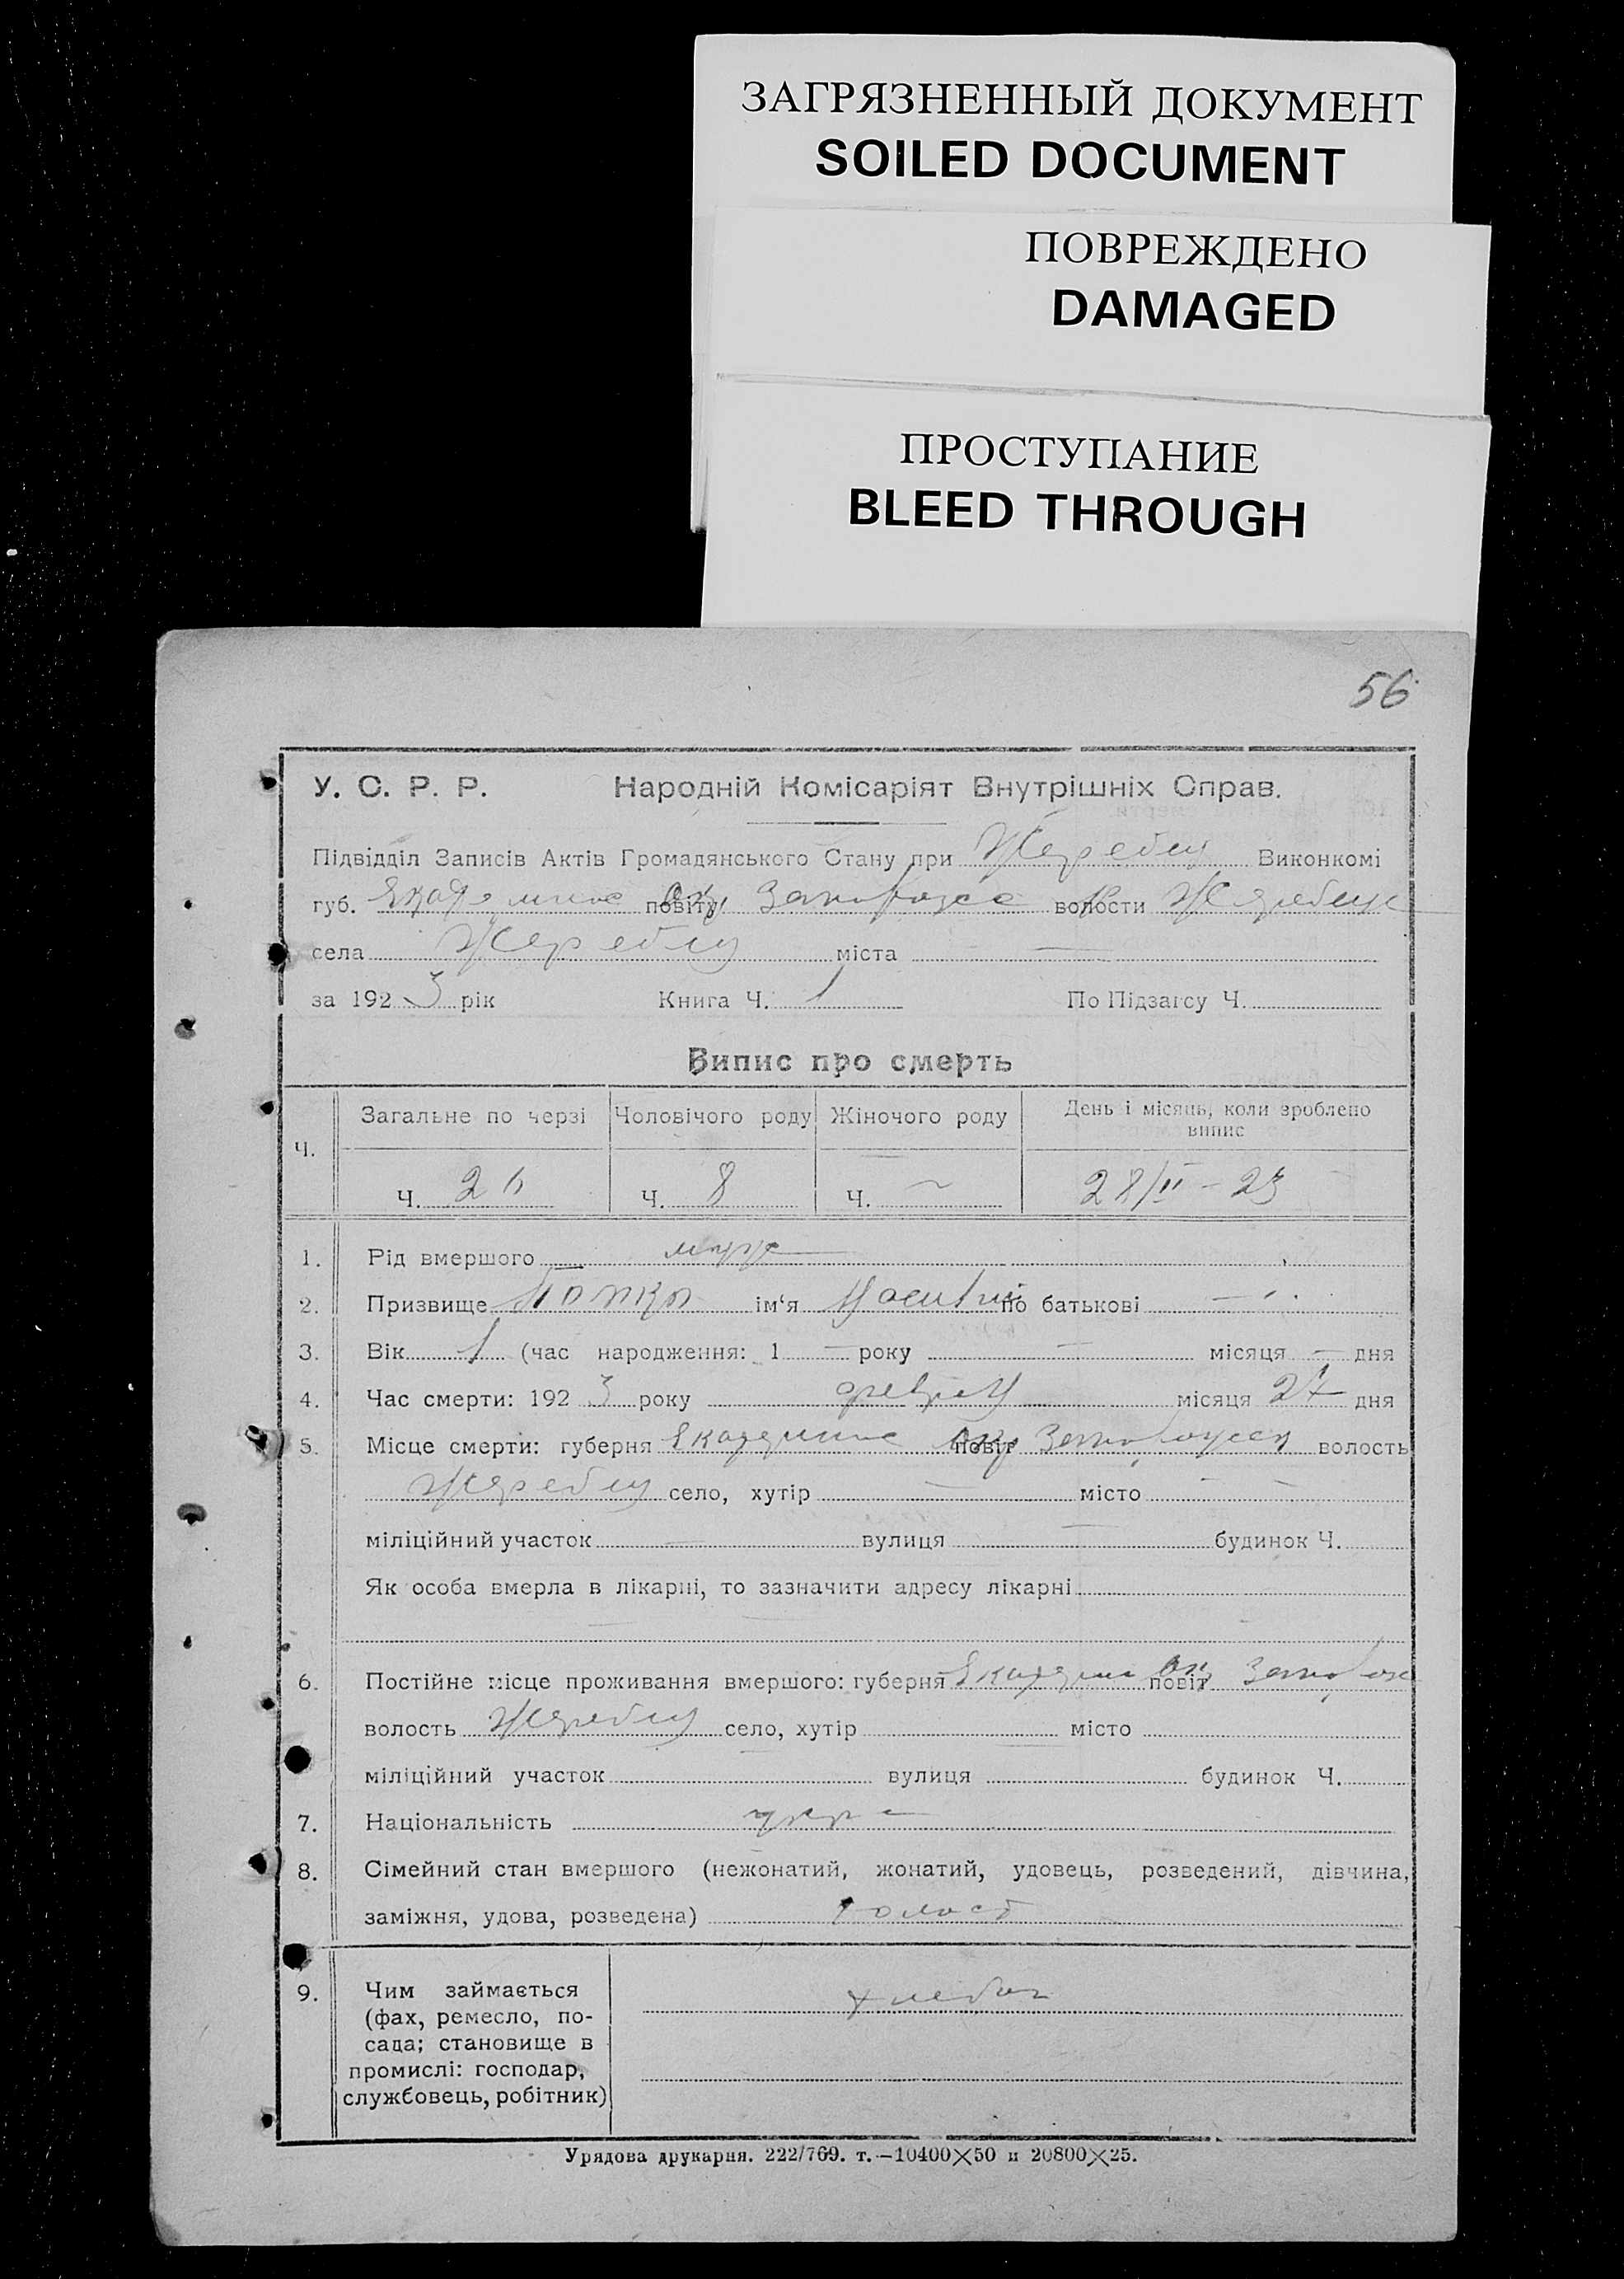 ЗАГРЯЗНЕННЫЙ ДОКУМЕНТ
SOILED DOCUMENT
ПОВРЕЖДЕНО
DAMAGED
ПРОСТУПАНИЕ
BLEED THROUGH
56
У. С. Р. Р. Народній Комісаріят Внутрішніх Справ.
Підвідділ Записів Актів Громадянського Стану при Жеребец Виконкомі
губ. повіту волости
села міста —
за 1923 рік Книга Ч. 1 По Підзагсу Ч.
Випис про смерть
Ч. Загальне по черзі Чоловічого роду Жіночого роду День і місяць, коли зроблено
випис
Ч. Ч. 8 Ч. ~ 28/II - 23
1. Рід вмершого муж
2. Призвище ім'я по батькові —
3. Вік 1 (час народження: 1 — року — місяця — дня
4. Час смерти: 1923 року місяця 27 дня
5. Місце смерти: губерня повіт волость
село, хутір — місто —
міліційний участок — вулиця — будинок Ч.
Як особа вмерла в лікарні, то зазначити адресу лікарні
6. Постійне місце проживання вмершого: губерня повіт
волость село, хутір місто
міліційний участок вулиця будинок Ч.
7. Національність укр
8. Сімейний стан вмершого (нежонатий, жонатий, удовець, розведений, дівчина,
заміжня, удова, розведена) холост
9. Чим займається
(фах, ремесло, по-
сада; становище в
промислі: господар,
службовець, робітник)
хлебоп
Урядова друкарня. 222/769. т.—10400×50 и 20800×25.